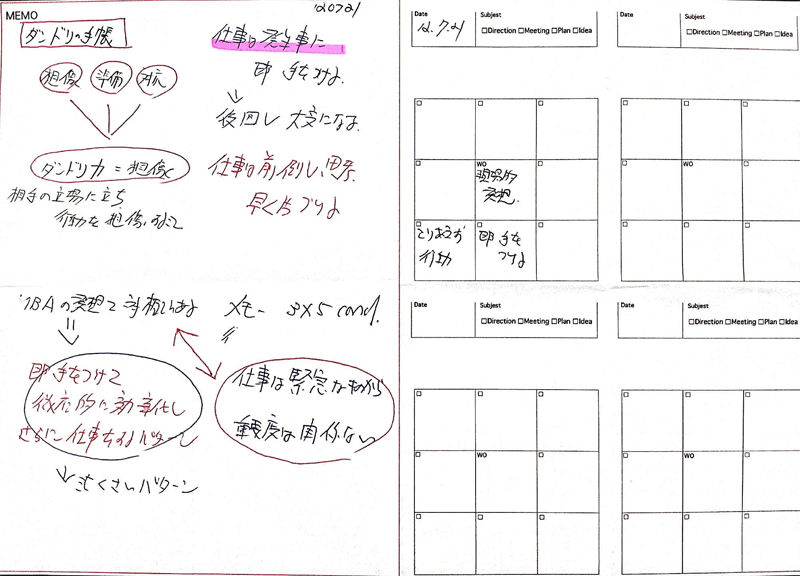 MEMO
120721
ダンドリの手帳
想像 準備 対応
ダンドリ力=想像
相手の立場に立ち
行動を想像すること
仕事は発生事に
即手をつけよ
↓
後回し 大変になる
仕事は前倒し、
早く片づけよ
の発想で
↓
即手をつけて
徹底的に効率化し
さらに仕事をするパターン
↓
パターン
メモー 3×5 card.
仕事は緊急なものから
重要度は関係ない
Date 12.7.21 Subject
□Direction □Meeting □Plan □Idea
WO
現実的
発想.
とりあえず
行動
即手を
つけよ
Date Subject
□Direction □Meeting □Plan □Idea
WO
Date Subject
□Direction □Meeting □Plan □Idea
WO
Date Subject
□Direction □Meeting □Plan □Idea
WO